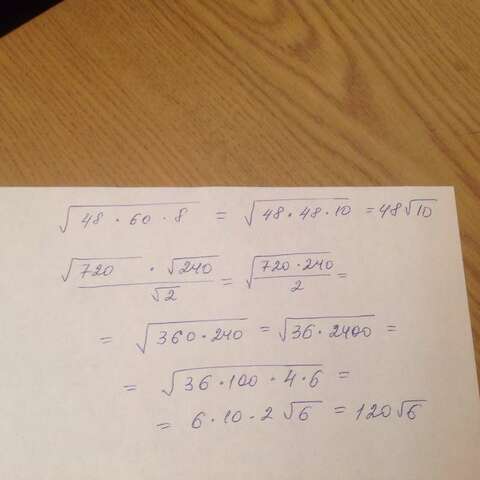 √48 · 60 · 8 = √48 · 48 · 10 = 48√10
√720 · √240 / √2 = √720 · 240 / 2 =
= √360 · 240 = √36 · 2400 =
= √36 · 100 · 4 · 6 =
= 6 · 10 · 2 √6 = 120√6